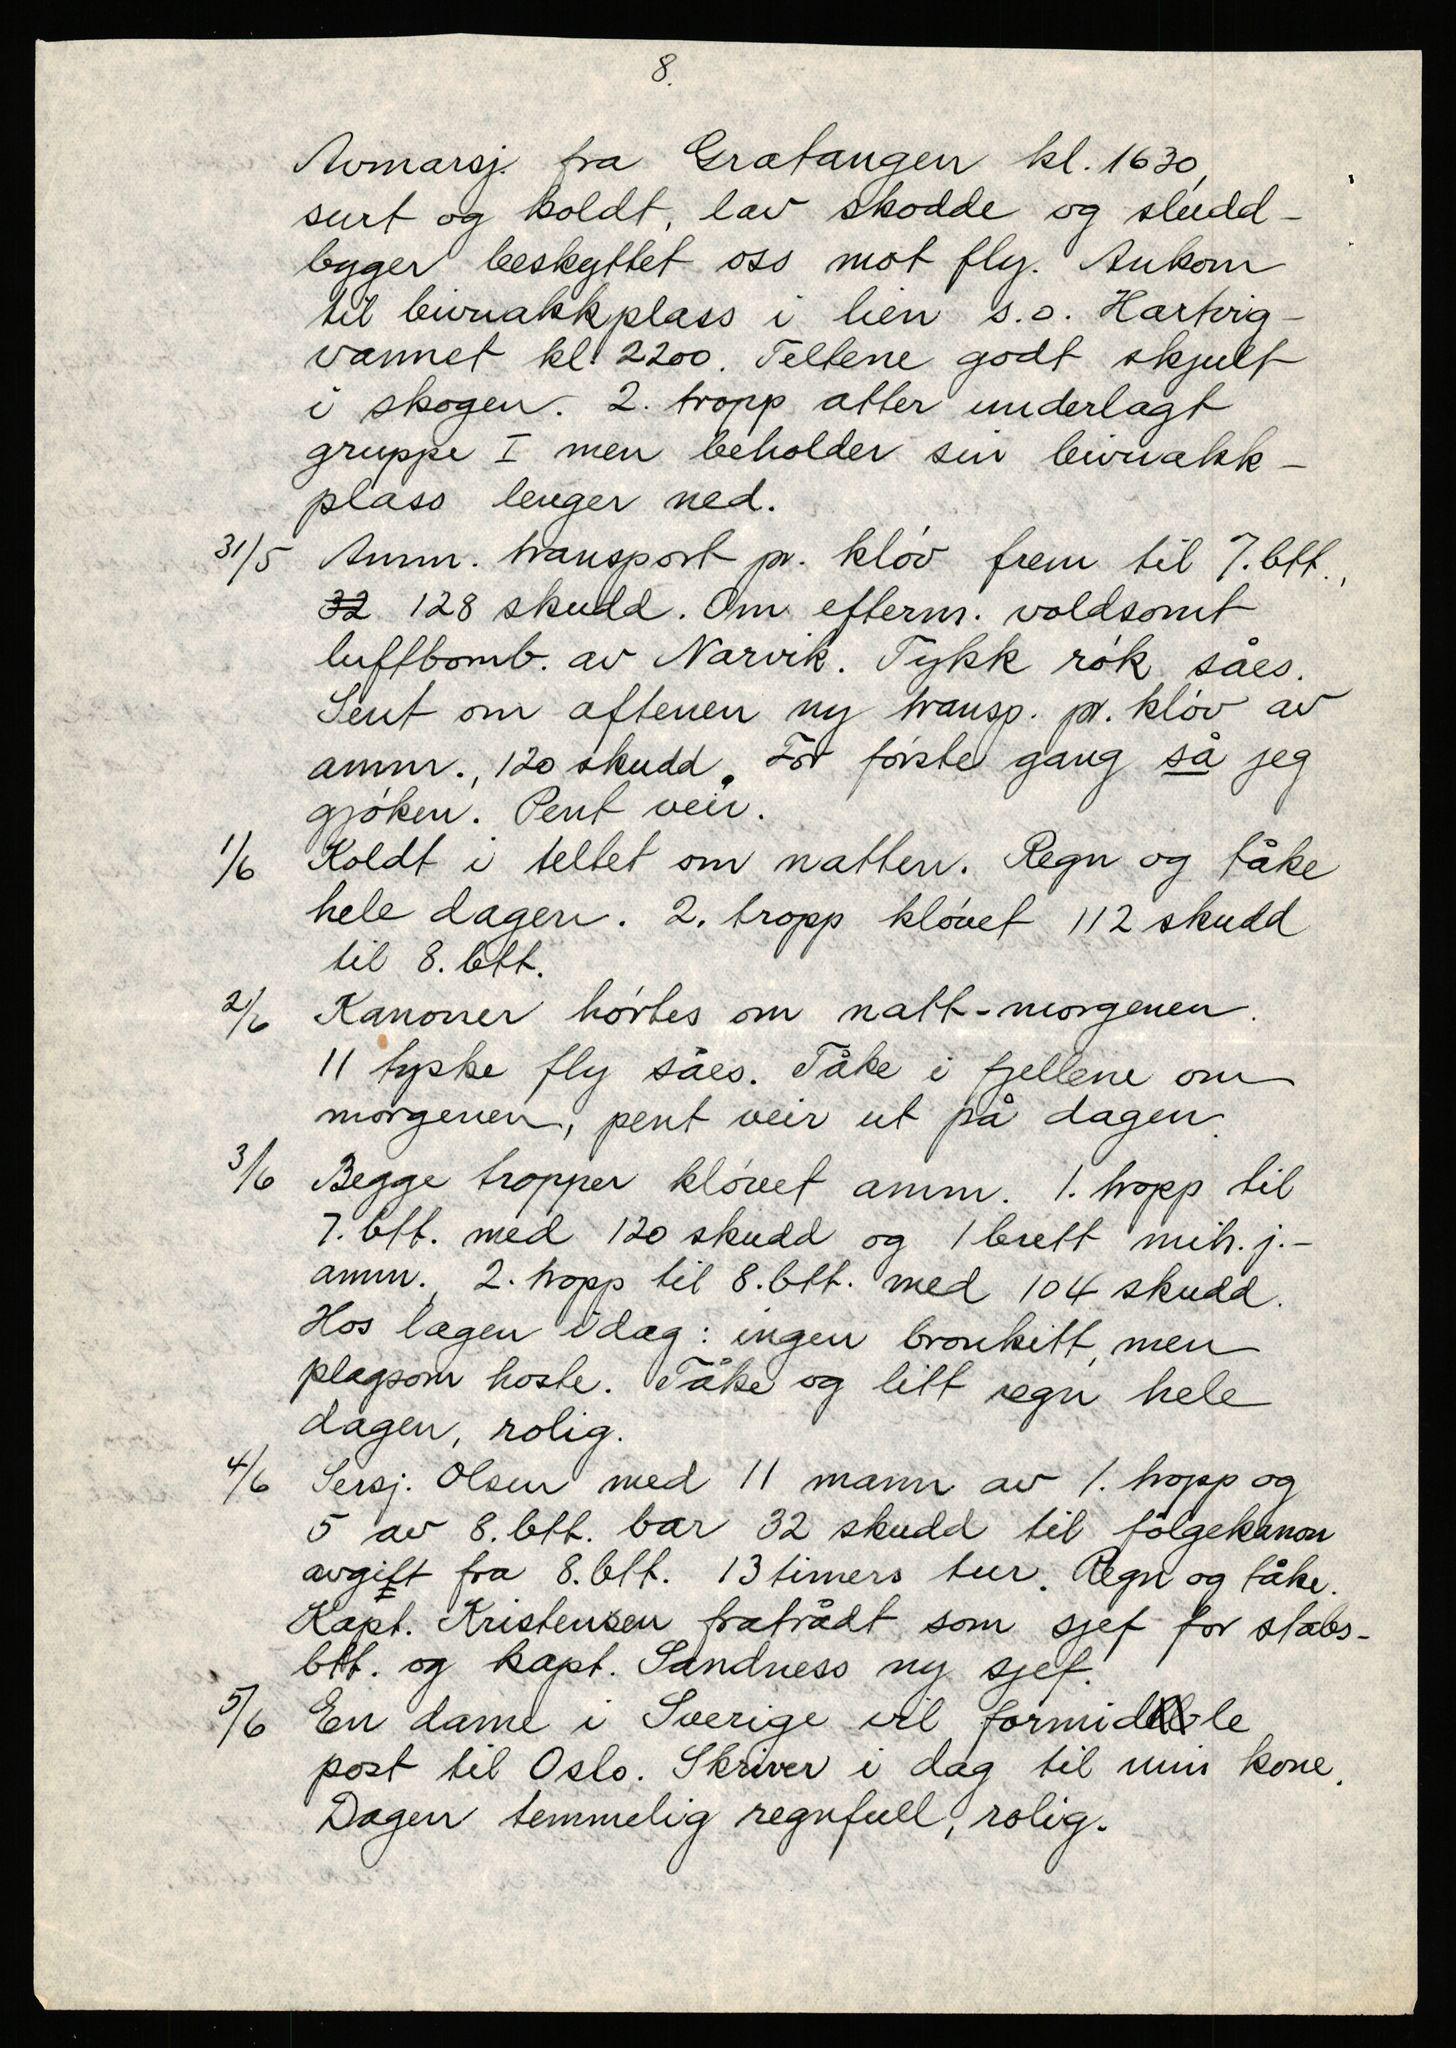 8.
Avmarsj. fra Gratangen kl. 1630,
surt og koldt, lav skodde og sludd-
byger beskyttet oss mot fly. Ankom
til bivuakkplass i lien s.o. Hartvig-
vannet kl. 2200. Teltene godt skjult
i skogen. 2. tropp atter underlagt
gruppe I men beholder sin bivuakk-
plass lenger ned.
31/5 Amm. transport pr. kløv frem til 7. btt.,
32 128 skudd. Om efterm. voldsomt
luftbomb. av Narvik. Tykk røk såes.
Sent om aftenen ny transp. pr. kløv av
amm., 120 skudd. For første gang så jeg
gjøken. Pent veir.
1/6 Koldt i teltet om natten. Regn og tåke
hele dagen. 2. tropp kløvet 112 skudd
til 8. btt.
2/6 Kanoner hørtes om natt-morgenen.
11 tyske fly såes. Tåke i fjellene om
morgenen, pent veir ut på dagen.
3/6 Begge tropper kløvet amm. 1. tropp til
7. btt. med 120 skudd og 1 brett mitr. j.-
amm., 2. tropp til 8. btt. med 104 skudd.
Hos lægen idag: ingen bronkitt, men
plagsom hoste. Tåke og litt regn hele
dagen, rolig.
4/6 Sersj. Olsen med 11 mann av 1. tropp og
5 av 8. btt. bar 32 skudd til følgekanon
avgitt fra 8. btt. 13 timers tur. Regn og tåke.
Kapt. Kristensen fratrådt som sjef for stabs-
btt. og kapt. Sandness ny sjef.
5/6 En dame i Sverige vil formidle
post til Oslo. Skriver i dag til min kone.
Dagen temmelig regnfull, rolig.